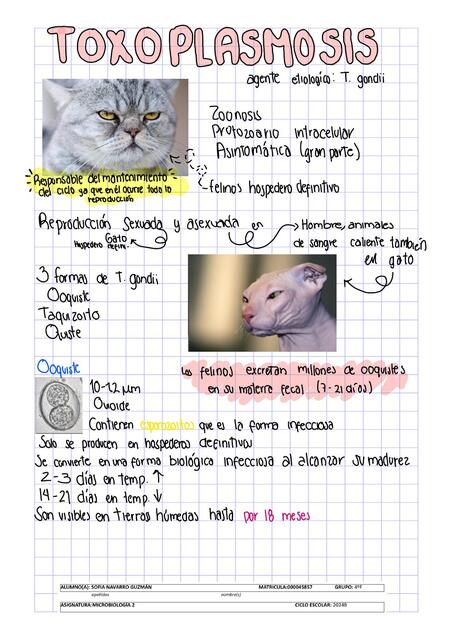 TOXOPLASMOSIS
agente etiologico: T. gondii
Zoonosis
Protozoario intracelular
Asintomática (gran parte)
felinos hospedero definitivo
Responsable del mantenimiento
del ciclo ya que en él ocurre toda la
reproducción
Reproducción Sexuada y asexuada en
Hombre, animales
de sangre caliente también
en gato
Gato
Hospedero defini.
3 formas de T. gondii
Ooquiste
Taquizoito
Quiste
Ooquiste
Los felinos excretan millones de ooquistes
en su materia fecal (7-21 días)
10-12 µm
Ovoide
Contienen esporozoitos que es la forma infecciosa
Solo se producen en hospederos definitivos
Se convierte en una forma biológica infecciosa al alcanzar su madurez
2-3 días en temp. ↑
14-21 días en temp. ↓
Son visibles en tierras húmedas hasta por 18 meses
ALUMNO(A): SOFIA NAVARRO GUZMÁN MATRICULA:000045857 GRUPO: 4º
apellidos nombre(s)
ASIGNATURA:MICROBIOLOGÍA 2 CICLO ESCOLAR: 2024B